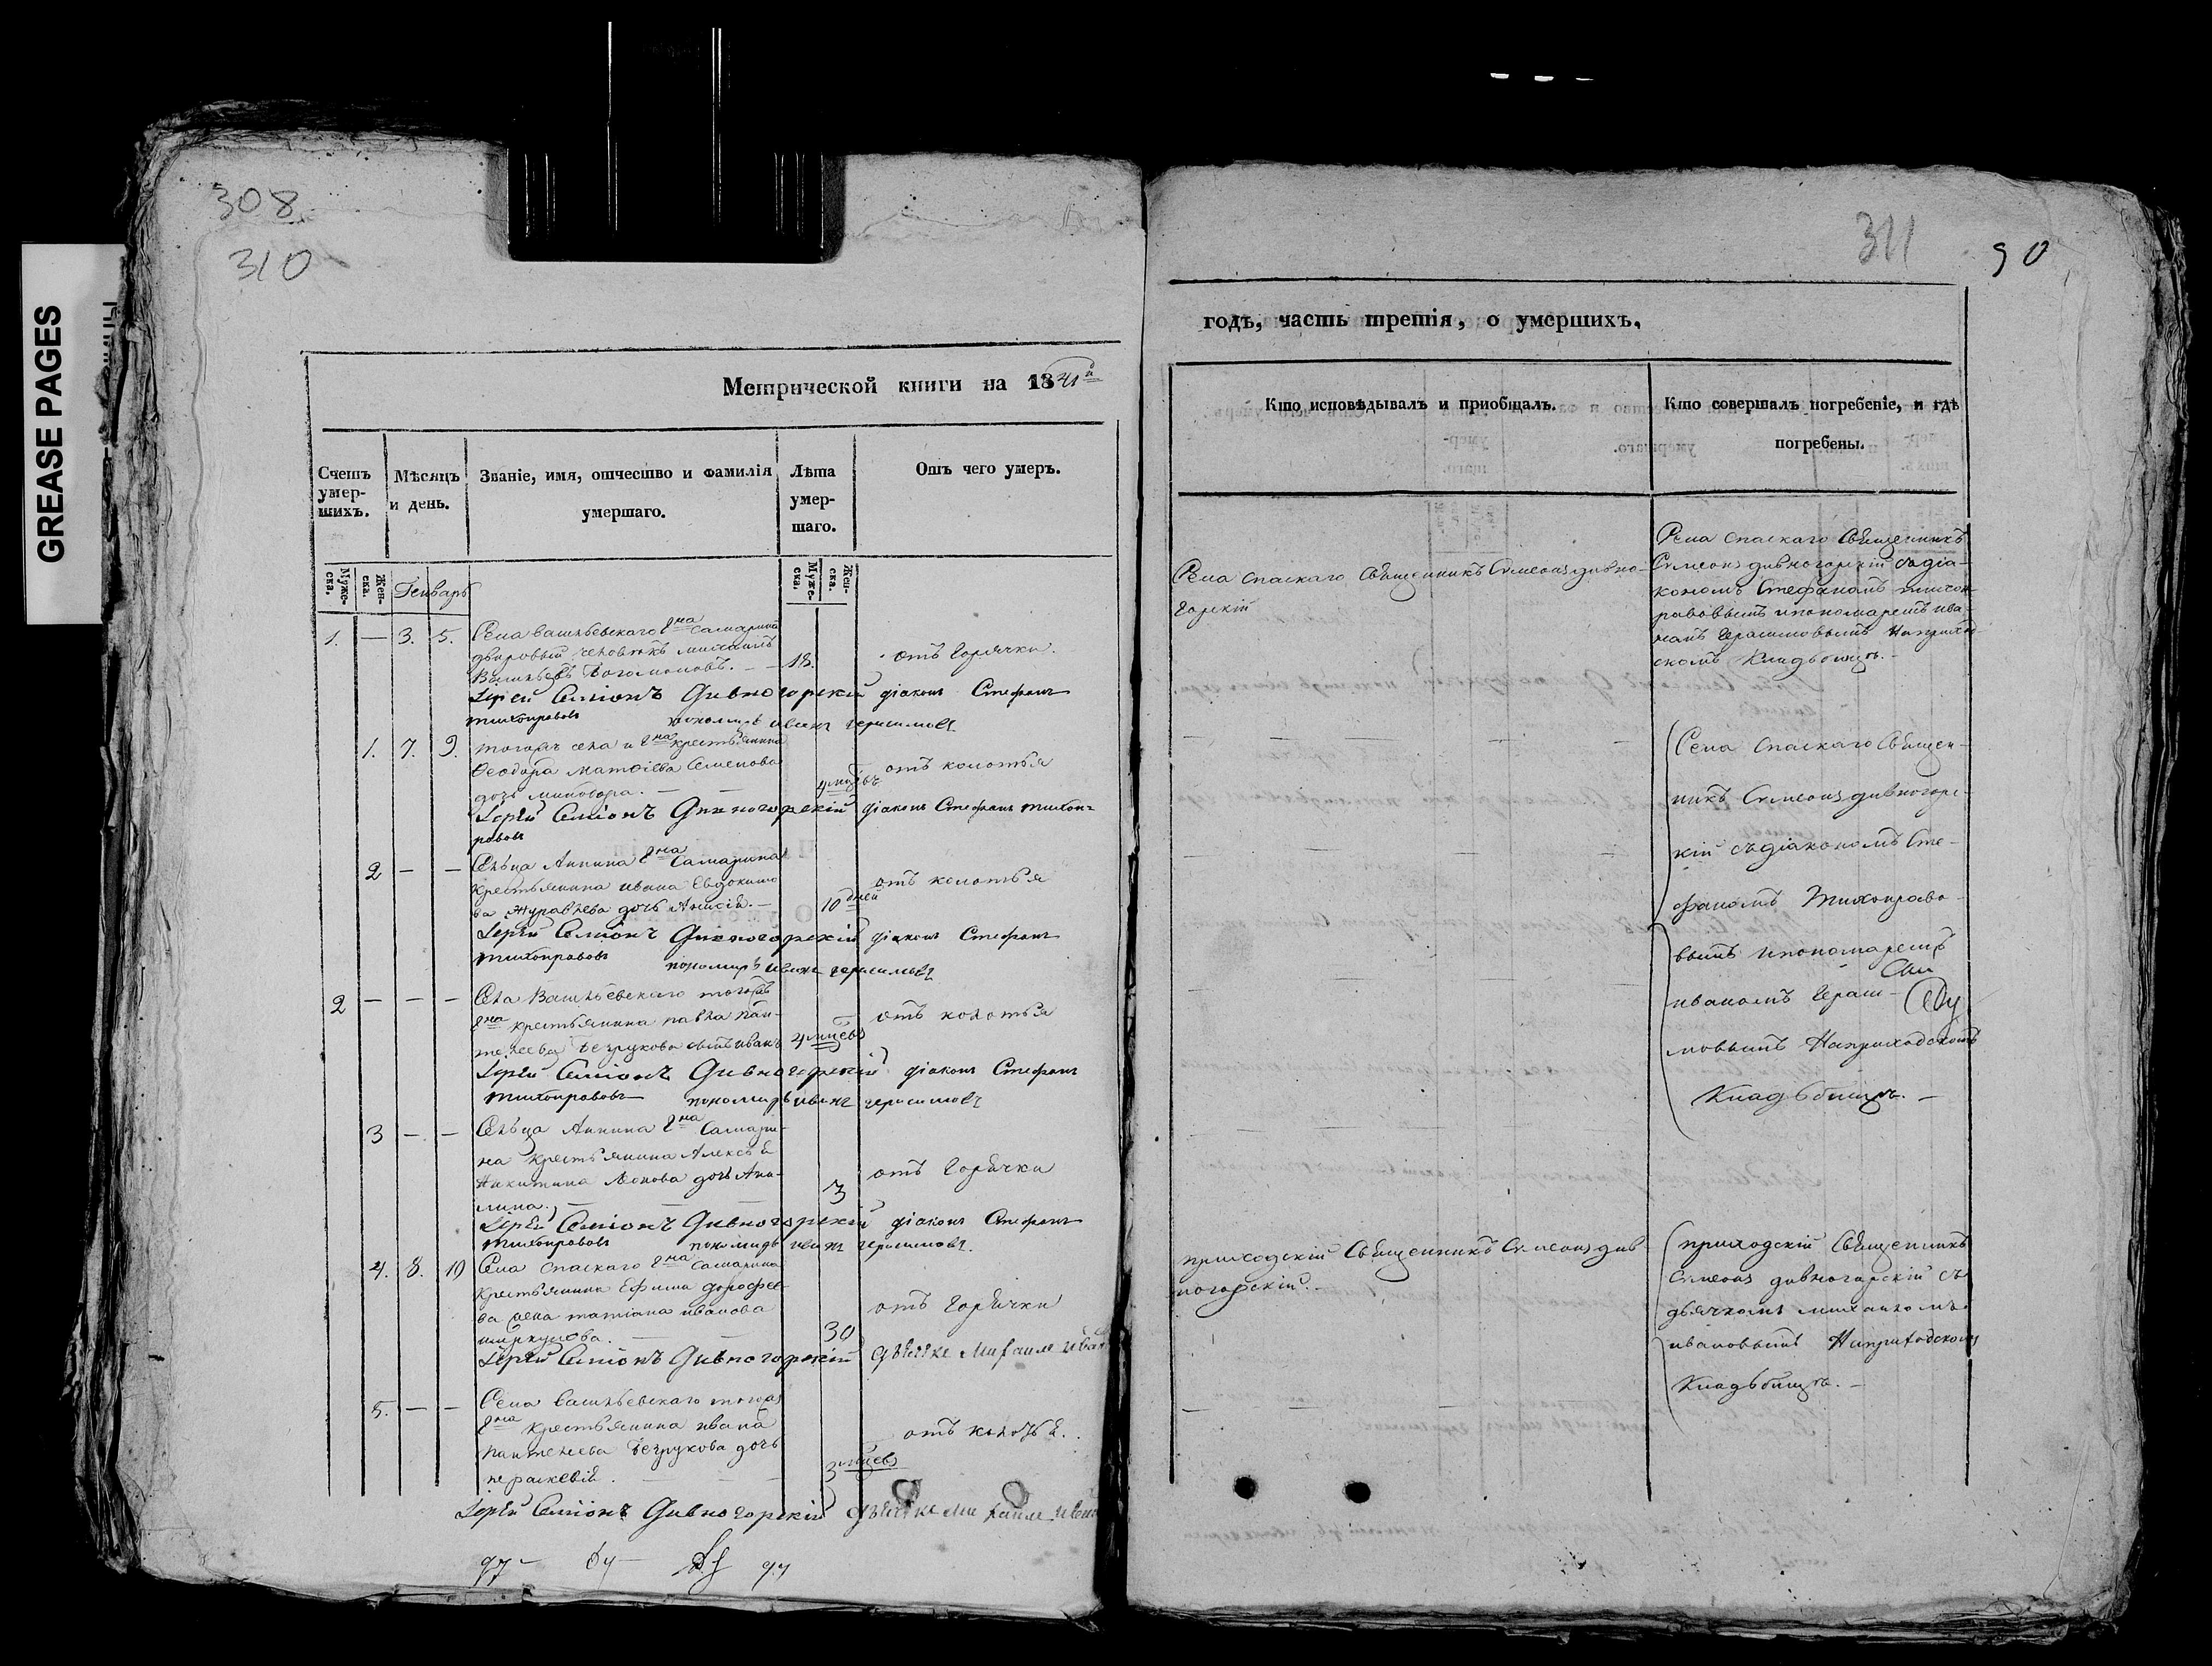 GREASE PAGES
308
310
Метрической книги на 1841й
Счетъ умер-шихъ.
Мѣсяцъ и день.
Званіе, имя, отчество и фамилія умершаго.
Лѣта умер-шаго.
Отъ чего умеръ.
Муже-ска.
Жен-ска.
Генварь
Муже-ска.
Жен-ска.
1. — 3. 5.
Села Васильевскаго Гна Самарина
дворовый человѣкъ Михаилъ
Васильевъ — —
18.
отъ Горячки.
Іерей Симіонъ Дивногорскій діаконъ Стефанъ
Тихонравовъ пономарь Иванъ Герасимовъ
1. 7. 9.
тогожъ села и Гна крестьянина
Ѳеодора Матѳіева Семенова
дочь —
4
отъ колотья
Іерей Симіонъ Дивногорскій діаконъ Стефанъ Тихон-
равовъ
2 — —
Сельца Аннина Гна Самарина
крестьянина Ивана Евдокимо
ва Журавлева дочь —
10 дней
отъ колотья
Іерей Симіонъ Дивногорскій діаконъ Стефанъ
Тихонравовъ пономарь Иванъ Герасимовъ
2 — — —
Села Васильевскаго тогожъ
Гна крестьянина Павла Пан-
телеева Безрукова сынъ Иванъ
4 мцевъ
отъ колотья
Іерей Симіонъ Дивногорскій діаконъ Стефанъ
Тихонравовъ пономарь Иванъ Герасимовъ
3 — —
Сельца Аннина Гна Самари-
на крестьянина Алексѣя
Никитина дочь Аки-
лина. —
3
отъ Горячки
Іерей Симіонъ Дивногорскій діаконъ Стефанъ
Тихонравовъ пономарь Иванъ Герасимовъ.
4. 8. 10
Села Спаскаго Гна Самарина
крестьянина Ефима Дорофее-
ва жена Татіана Иванова
30
отъ Горячки
Іерей Симіонъ Дивногорскій дьячке Михаиле Иван
5. — —
Села Васильевскаго тогожъ
Гна крестьянина Ивана
Пантелеева Безрукова дочь
Параскевія. — —
3 мцевъ
отъ колотья.
Іерей Симіонъ Дивногорскій дьячке Михаиле Иван
311
90
годъ, часть третія, о умершихъ.
Кто исповѣдывалъ и приобщалъ.
Кто совершалъ погребеніе, и гдѣ
погребены.
Села Спаскаго Священникъ Симеонъ Дивно-
горскій
Села Спаскаго Священникъ
Симеонъ Дивногорскій съ діа-
кономъ Стефаномъ Тихон-
равовымъ и пономаремъ Ива-
номъ Герасимовымъ На приход-
скомъ Кладбищѣ. —
Села Спаскаго Священ-
никъ Симеонъ Дивногорс-
кій съ діакономъ Сте-
фаномъ Тихонраво-
вымъ и пономаремъ
Иваномъ Гераси-
мовымъ На приходскомъ
Кладбищѣ. —
приходскій Священникъ Симеонъ Див
ногорскій. —
приходскій Священникъ
Симеонъ Дивногорскій съ
дьячкомъ Михаиломъ
Ивановымъ На приходскомъ
Кладбищѣ. —